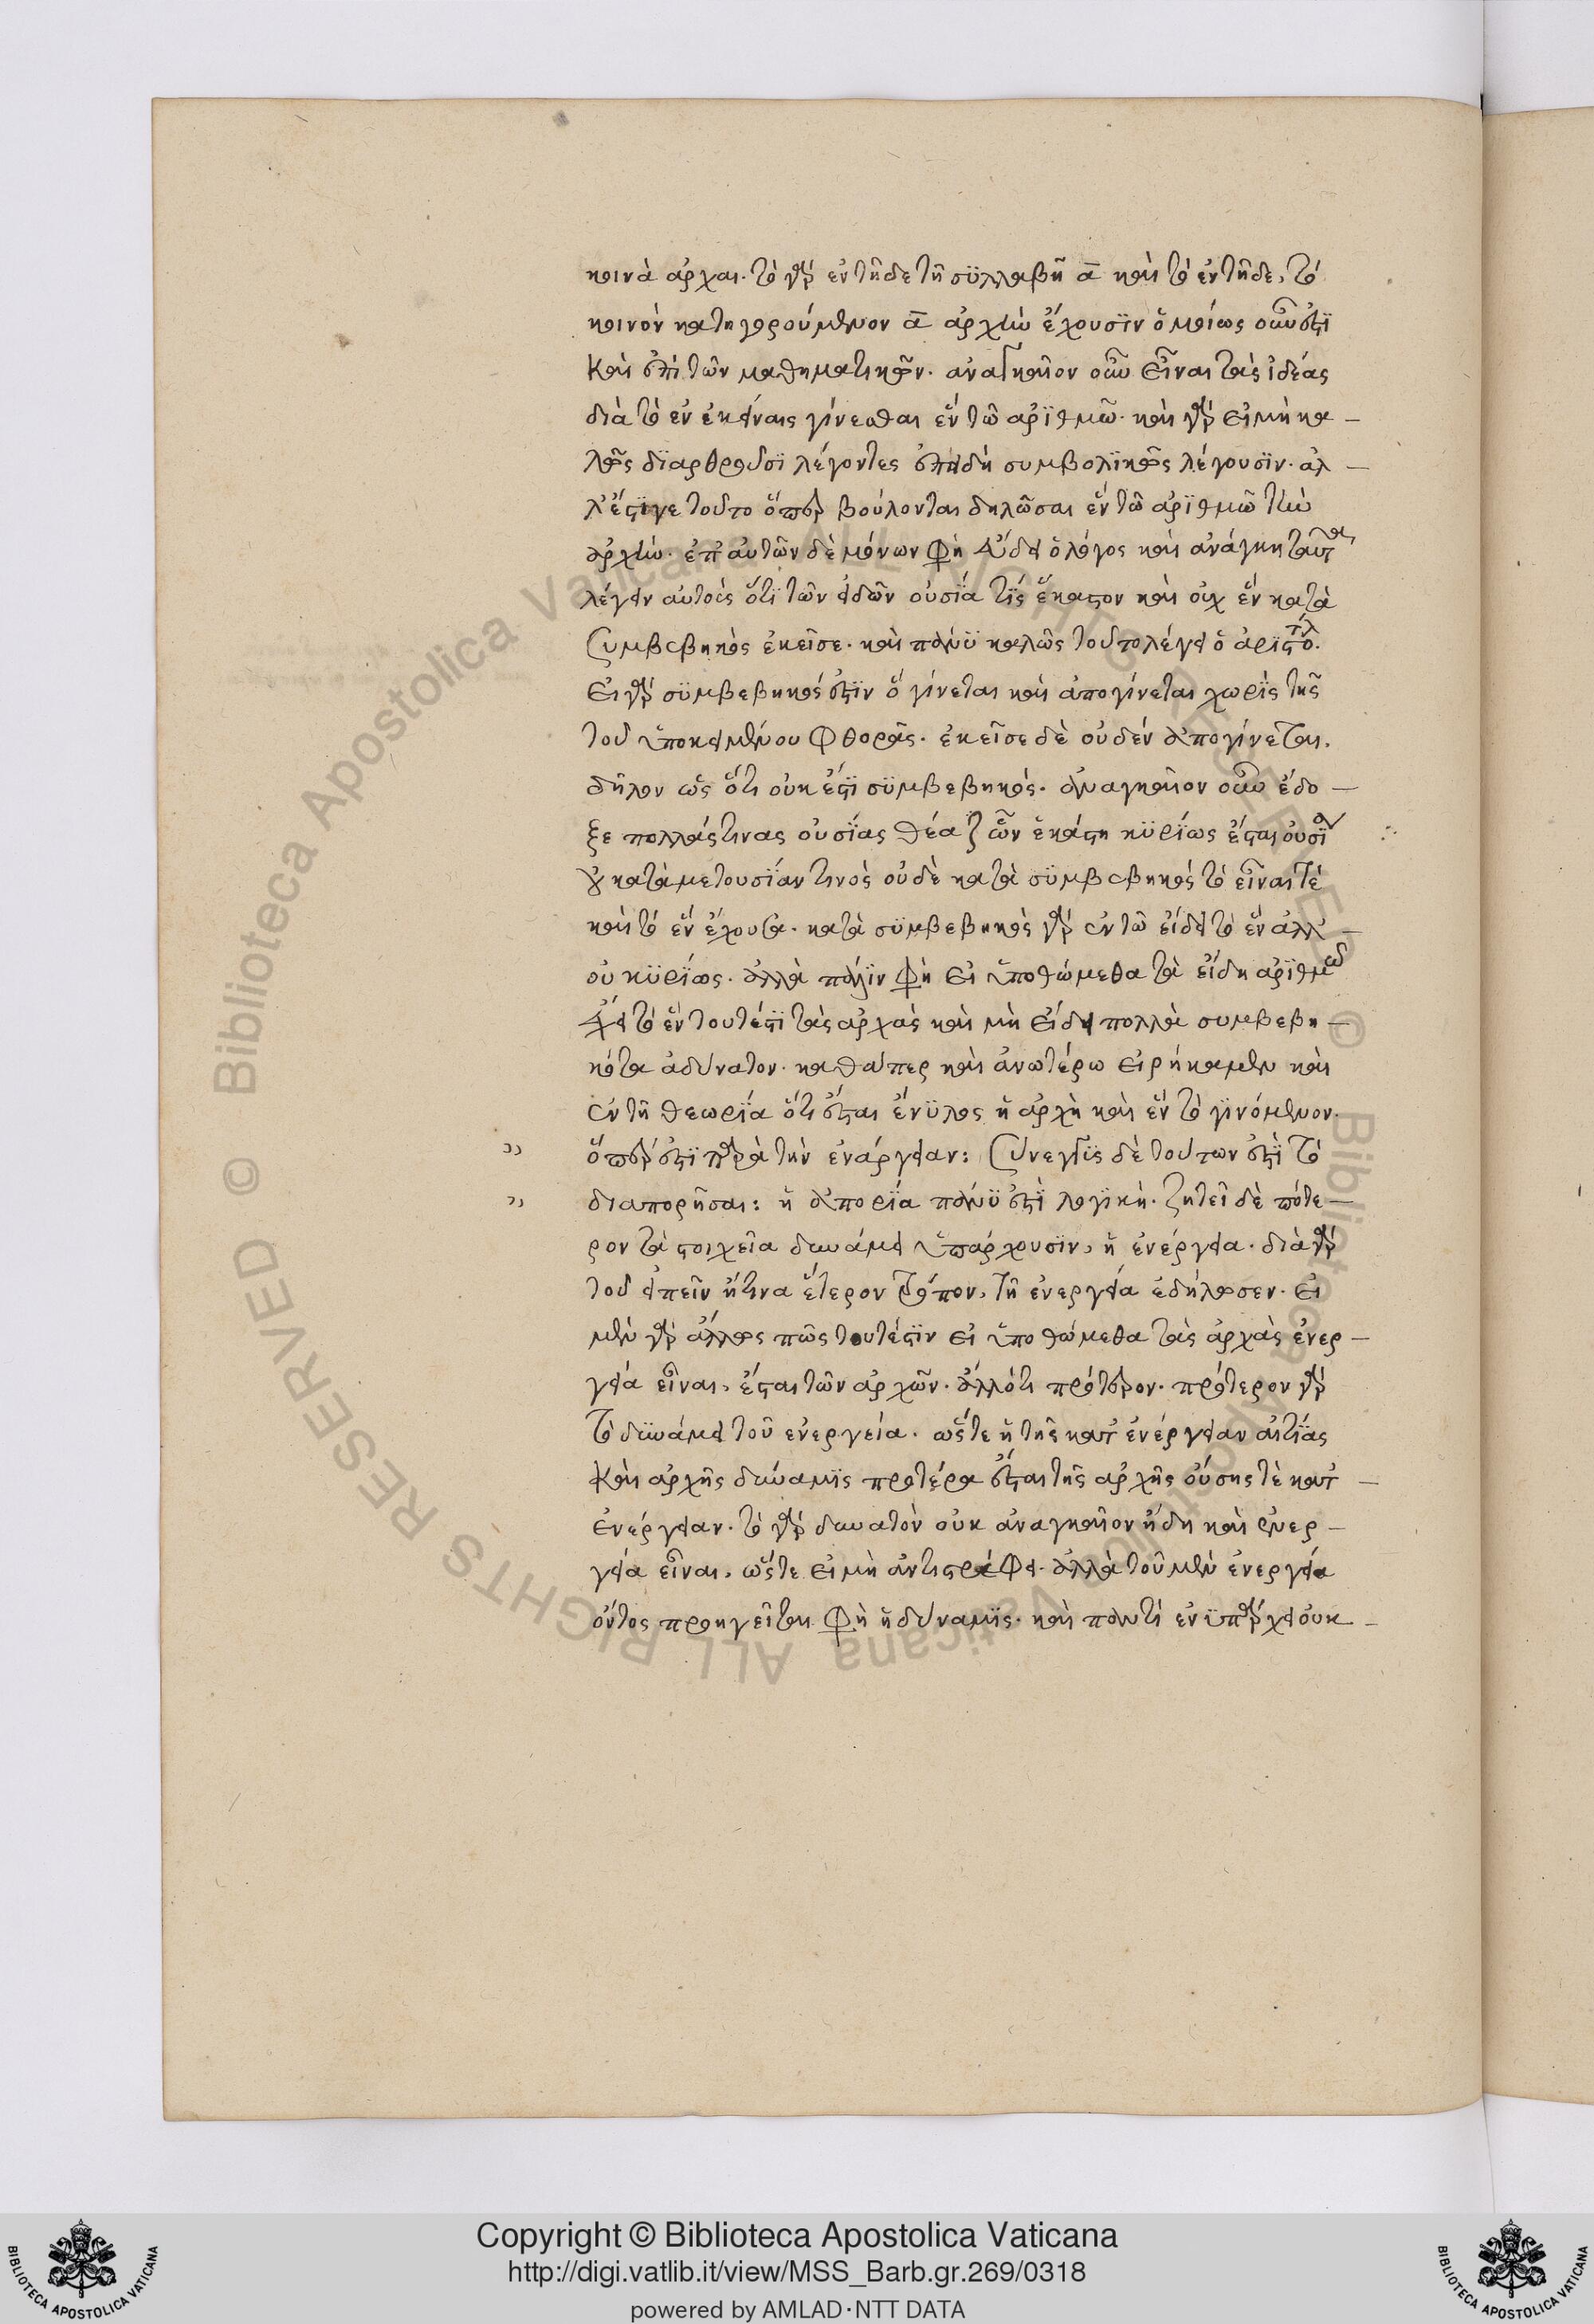 κοινὰ ἀρχαι. τὸ γὰρ ἐν τῆδε τῆ συλλαβῆ α καὶ τὸ ἐν τῆδε, τὸ
κοινὸν κατηγορούμενον α ἀρχὴν ἔχουσϊν ὁμοίως οὖν ἐστϊ
καὶ ἐπὶ τῶν μαθηματικῶν. ἀναγκαῖον οὖν εἶναι τὰς ἰδέας
διὰ τὸ ἐν ἐκείναις γίνεσθαι ἕν τῶ ἀρϊθμῶ. καὶ γὰρ εἰ μὴ κα –
λῶς δϊαρθροῦσϊ λέγοντες ἐπειδὴ συμβολϊκῶς λέγουσϊν. ἀλ –
λ' ἔστϊ γε τοῦτο ὅπερ βούλονται δηλῶσαι ἕν τῶ ἀρϊθμῶ τὴν
ἀρχὴν. ἐπ' αὐτῶν δὲ μόνων φη ὁ λόγος καὶ ἀνάγκη ταῦτα
λέγειν αὐτοὶς ὅτϊ τῶν εἰδῶν οὐσία τϊς ἕκαστον καὶ οὐχ ἕν κατὰ
συμβεβηκὸς ἐκεῖσε. καὶ πάνϋ καλῶς τοῦτο λέγει ὁ ἀρϊστοτλ.
εἰ γὰρ σϋμβεβηκός ἐστϊν ὅ γίνεται καὶ ἀπογίνεται χωρϊς τῆς
τοῦ ὑποκειμένου φθορᾶς. ἐκεῖσε δὲ οὐδέν ἀπογίνεται.
δῆλον ὡς ὅτι οὐκ ἔστϊ σϋμβεβηκός. ἀναγκαῖον οὖν ἔδο –
ξε πολλάς τινας οὐσίας θέα ὧν ἑκάστη κϋρϊως ἔσται οὐσϊα
οὐ κατὰ μετουσϊαν τινὸς οὐδὲ κατὰ σϋμβεβηκός τὸ εἶναι τὲ
καὶ τὸ ἕν ἔχουσα. κατὰ σϋμβεβηκὸς γὰρ ἐν τῶ εἴδει τὸ ἕν ἀλλ' –
οὐ κϋρϊως. ἀλλὰ πάλϊν φη εἰ ὑποθώμεθα τὰ εἴδη ἀρϊθμῶ
τὸ ἕν τουτέστϊ τὰς ἀρχὰς καὶ μὴ εἴδει πολλὰ συμβεβη –
κότα ἀδύνατον. καθάπερ καὶ ἀνωτέρω εἰρήκαμεν καὶ
ἐν τῆ θεωρϊα ὅτι ἔσται ἔνϋλος ἡ ἀρχὴ καὶ ἕν τὸ γϊνόμενον.
ὅπερ ἐστϊ παρὰ τὴν ἐνάργειαν: Συνεγγϊς δὲ τούτων ἐστϊ τὸ
διαπορῆσαι: ἡ ἀπορϊα πάνϋ ἐστϊ λογϊκὴ. ζητεῖ δὲ πότε –
ρον τὰ στοιχεῖα δυνάμει ὑπάρχουσϊν, ἢ ἐνέργεια. διὰ γὰρ
τοῦ εἰπεῖν ἤ τινα ἕτερον τρόπον, τῆ ἐνεργεία ἐδήλωσεν. εἰ
μὲν γὰρ ἄλλως πῶς τουτέστϊν εἰ ὑποθώμεθα τὰς ἀρχὰς ἐνερ –
γεία εἶναι, ἔσται τῶν ἀρχῶν. ἄλλό τι πρότερον. πρότερον γὰρ
τὸ δϋνάμει τοῦ ἐνεργεία. ὥστε ἡ τῆς κατ' ἐνέργειαν αἰτϊας
καὶ ἀρχῆς δύναμϊς προτέρα ἔσται τῆς ἀρχῆς οὔσης τὲ κατ' –
ἐνέργειαν. τὸ γὰρ δυνατὸν οὐκ ἀναγκαῖον ἤδη καὶ ἐνερ –
γεία εἶναι, ὥστε εἰ μὴ ἀντιστρέφει. ἀλλὰ τοῦ μὲν ἐνεργεία
ὄντος προηγεῖται φη ἡ δύναμϊς. καὶ παντί ἐνϋπάρχει οὐκ –